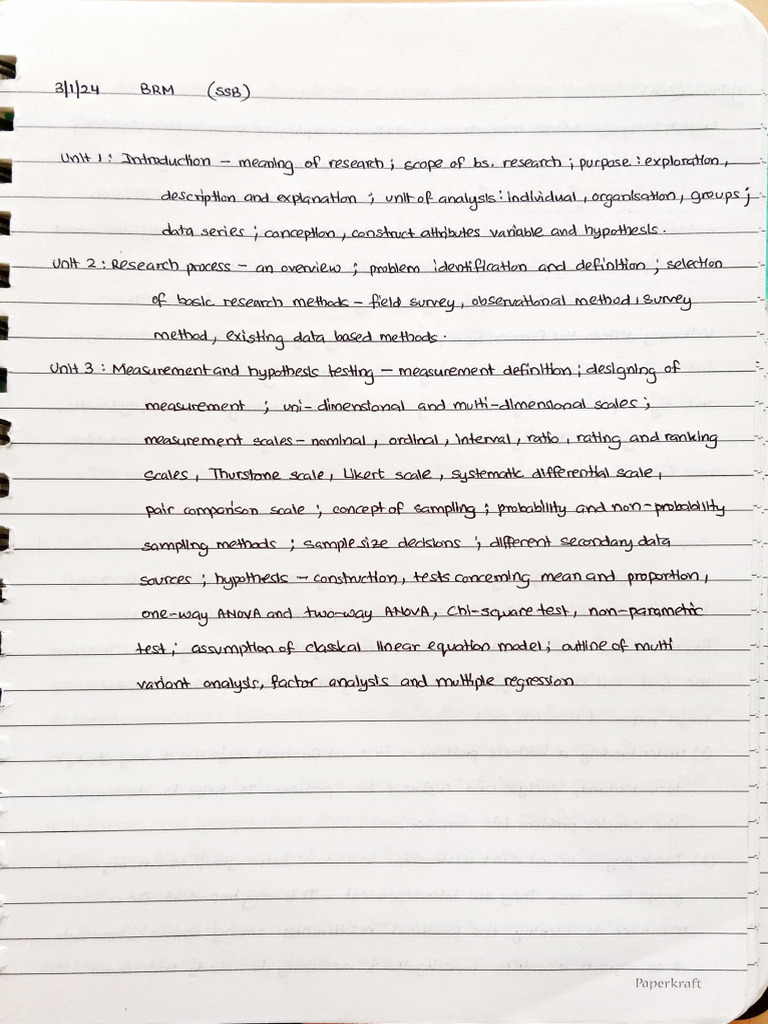 3/1/24 BRM (SSB)
Unit 1: Introduction – meaning of research; scope of bs. research; purpose: exploration,
description and explanation; unit of analysis: individual, organisation, groups;
data series; conception, construct attributes variable and hypothesis.
Unit 2: Research process – an overview; problem identification and definition; selection
of basic research methods – field survey, observational method, survey
method, existing data based methods.
Unit 3: Measurement and hypothesis testing – measurement definition; designing of
measurement; uni-dimensional and multi-dimensional scales;
measurement scales – nominal, ordinal, interval, ratio, rating and ranking
scales, Thurstone scale, Likert scale, systematic differential scale,
pair comparison scale; concept of sampling; probability and non-probability
sampling methods; sample size decisions; different secondary data
sources; hypothesis – construction, tests concerning mean and proportion,
one-way ANOVA and two-way ANOVA, Chi-square test, non-parametric
test; assumption of classical linear equation model; outline of multi
variant analysis, factor analysis and multiple regression
Paperkraft